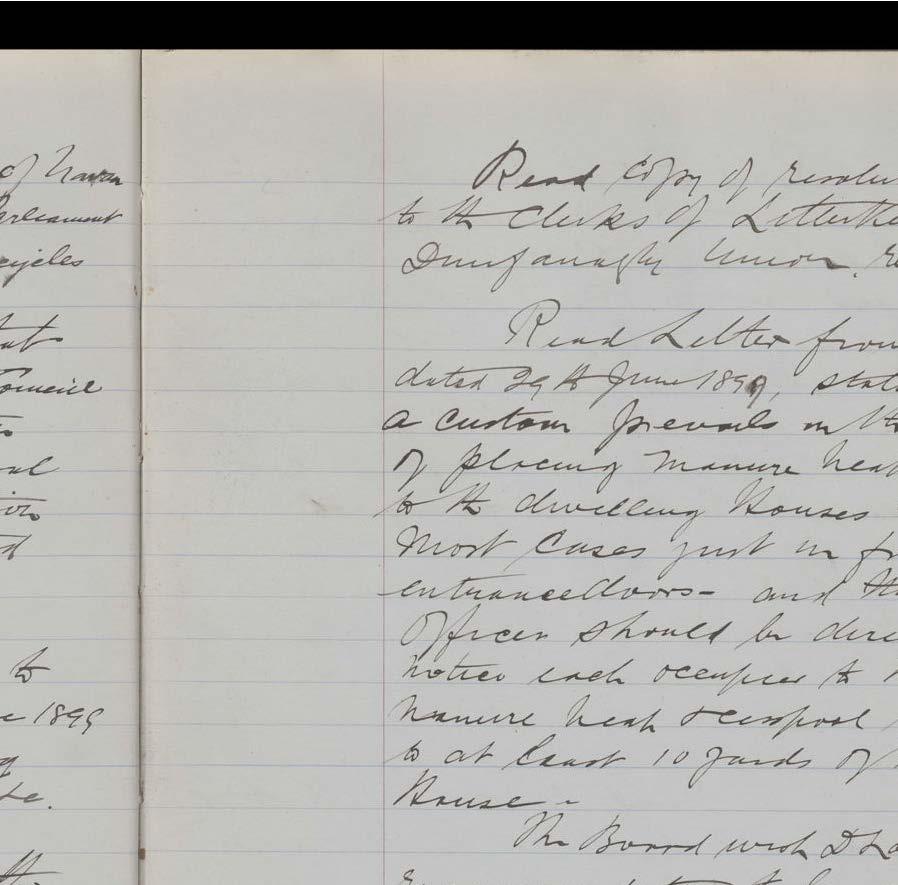 of Navan
Parliament
cycles
Council
to
1899
Read copy of resolu
to the Clerks of Letterke
Dunfanaghy Union, re
Read Letter from
dated 29th June 1899, stat
a custom prevails in the
of placing manure heap
to the dwelling Houses
most cases just in fr
entrance doors - and the
Officer should be dire
notice each occupier to
manure heap & cesspool
to at least 10 yards of
House -
The Board wish D La